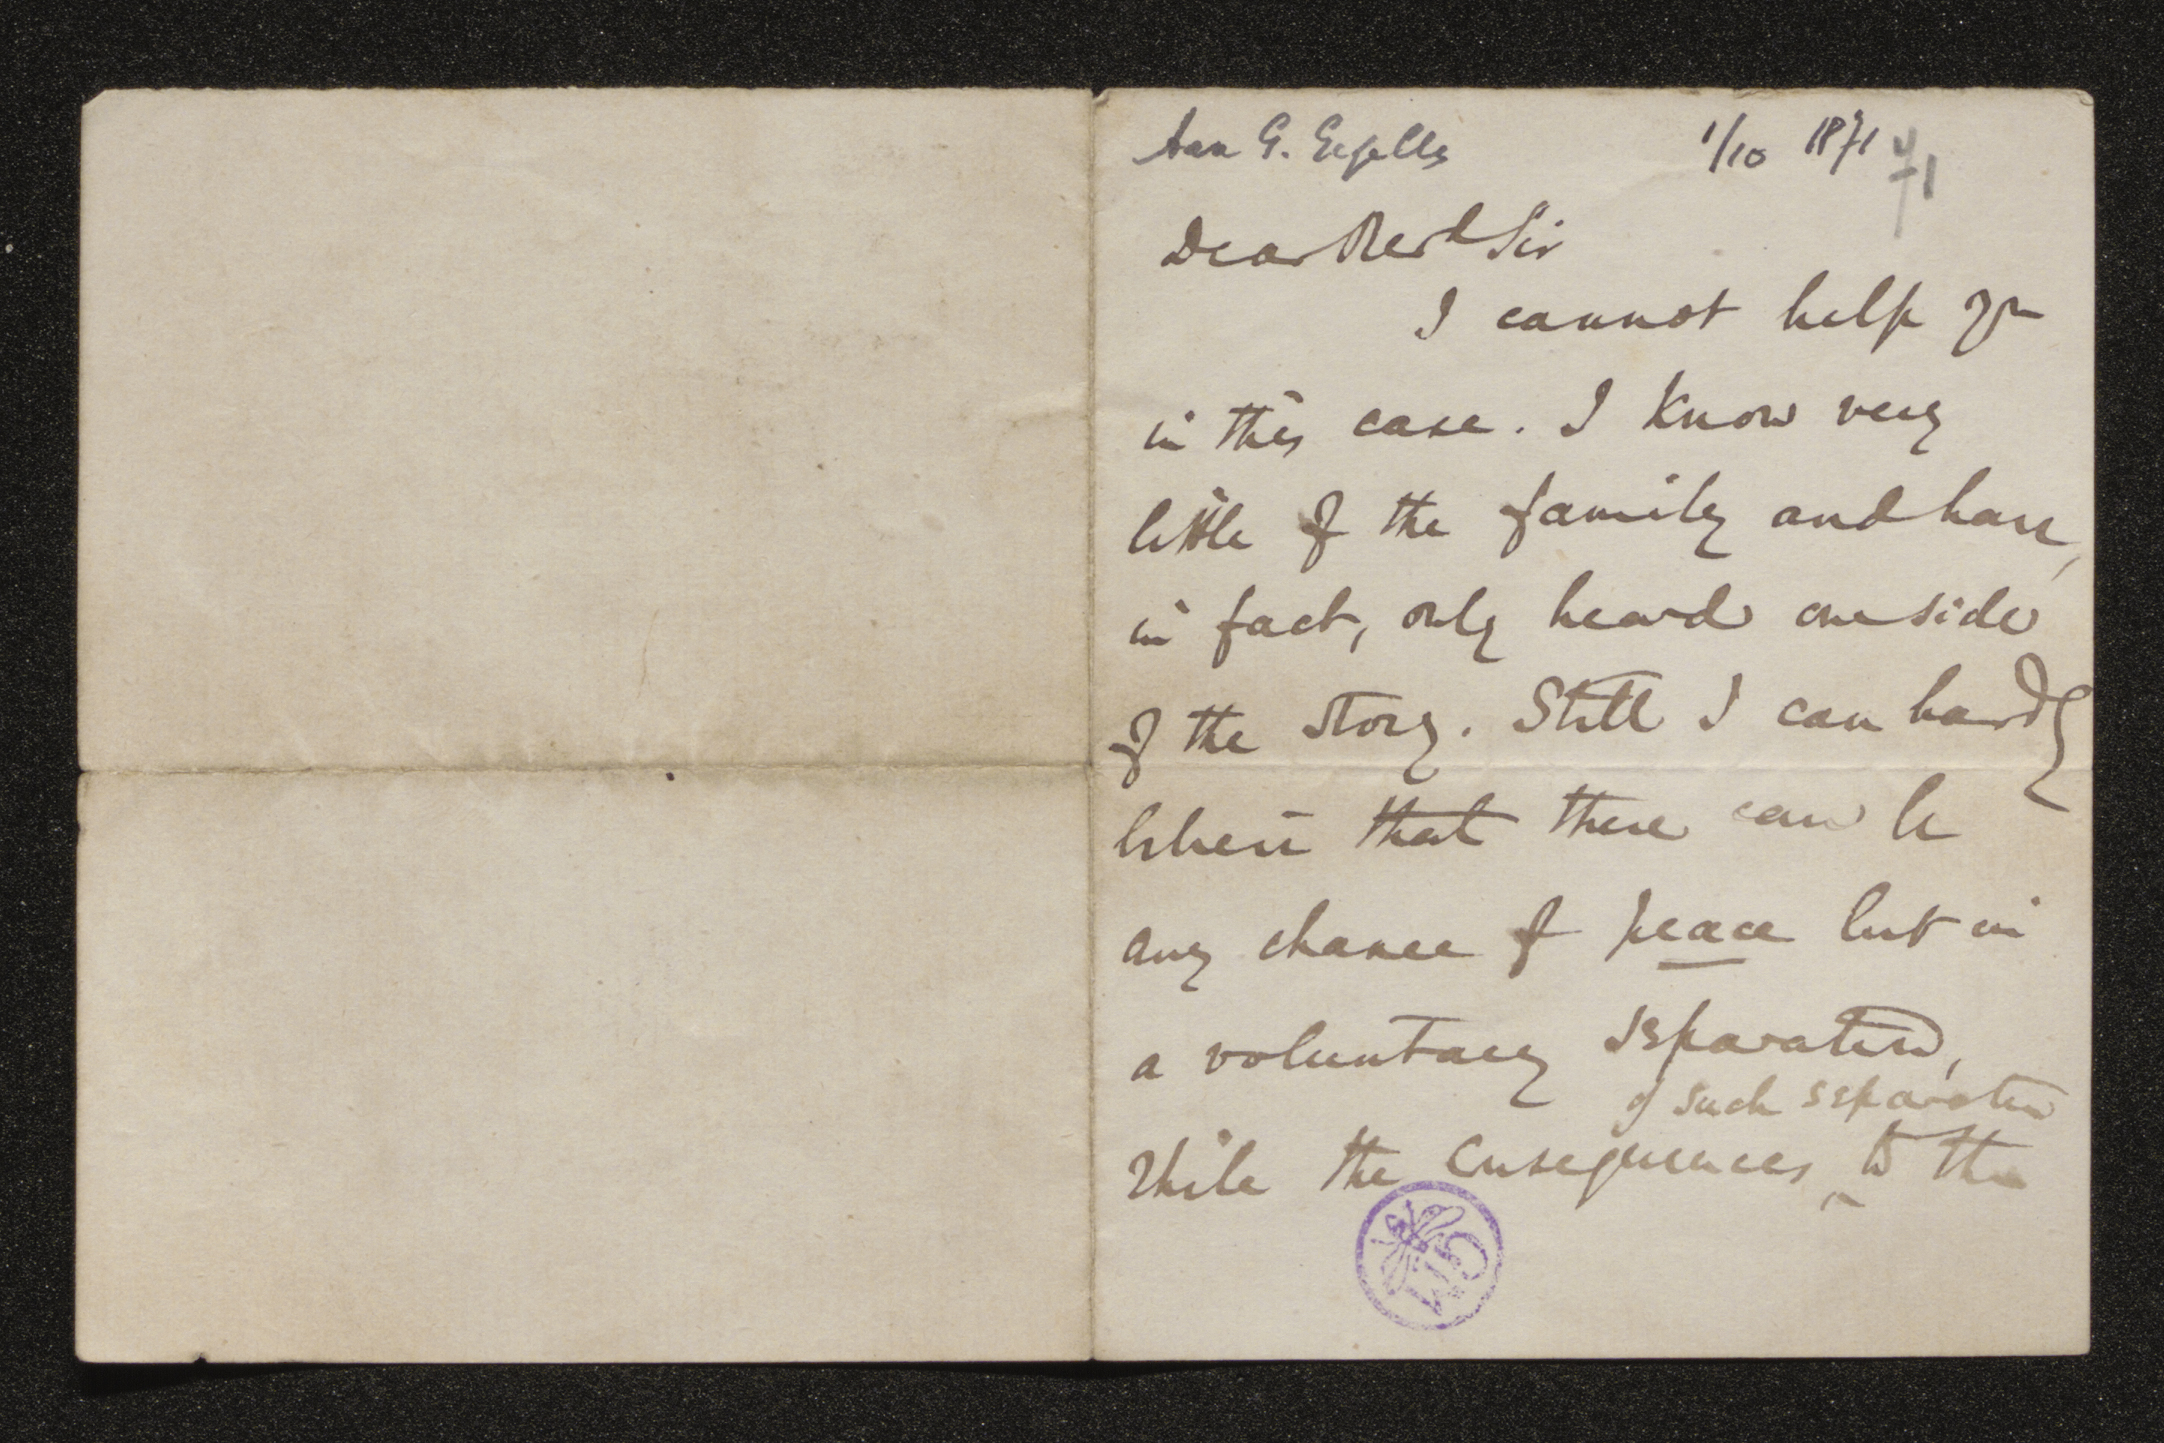 1/10 1871
71
Dear Revd Sir
I cannot help you
in this case. I know very
little of the family and have,
in fact, only heard one side
of the story. Still I can hardly
believe that there can be
any chance of peace but in
a voluntary separation,
of such separation
While the consequences ^ to the